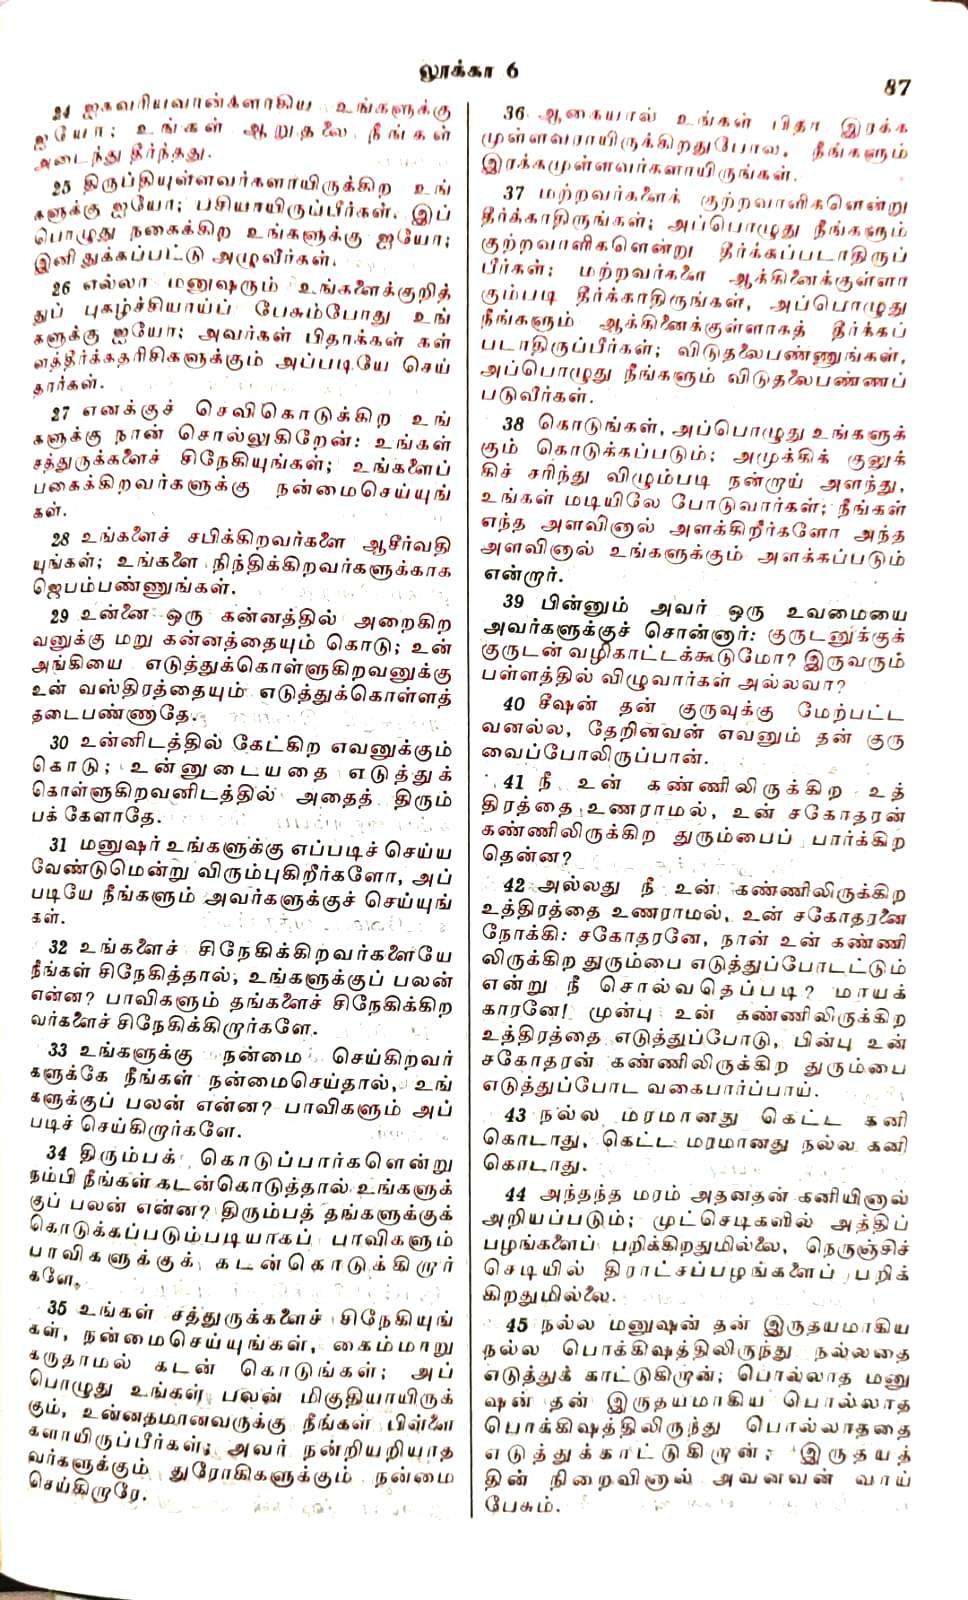 லூக்கா 6
87
24 ஐசுவரியவான்களாகிய உங்களுக்கு
ஐயோ; உங்கள் ஆறுதலை நீங்கள்
அடைந்து தீர்ந்தது.
25 திருப்தியுள்ளவர்களாயிருக்கிற உங்
களுக்கு ஐயோ; பசியாயிருப்பீர்கள். இப்
பொழுது நகைக்கிற உங்களுக்கு ஐயோ;
இனி துக்கப்பட்டு அழுவீர்கள்.
26 எல்லா மனுஷரும் உங்களைக்குறித்
துப் புகழ்ச்சியாய்ப் பேசும்போது உங்
களுக்கு ஐயோ; அவர்கள் பிதாக்கள் கள்
ளத்தீர்க்கதரிசிகளுக்கும் அப்படியே செய்
தார்கள்.
27 எனக்குச் செவிகொடுக்கிற உங்
களுக்கு நான் சொல்லுகிறேன்: உங்கள்
சத்துருக்களைச் சிநேகியுங்கள்; உங்களைப்
பகைக்கிறவர்களுக்கு நன்மைசெய்யுங்
கள்.
28 உங்களைச் சபிக்கிறவர்களை ஆசீர்வதி
யுங்கள்; உங்களை நிந்திக்கிறவர்களுக்காக
ஜெபம்பண்ணுங்கள்.
29 உன்னை ஒரு கன்னத்தில் அறைகிற
வனுக்கு மறு கன்னத்தையும் கொடு; உன்
அங்கியை எடுத்துக்கொள்ளுகிறவனுக்கு
உன் வஸ்திரத்தையும் எடுத்துக்கொள்ளத்
தடைபண்ணாதே.
30 உன்னிடத்தில் கேட்கிற எவனுக்கும்
கொடு; உன்னுடையதை எடுத்துக்
கொள்ளுகிறவனிடத்தில் அதைத் திரும்
பக் கேளாதே.
31 மனுஷர் உங்களுக்கு எப்படிச் செய்ய
வேண்டுமென்று விரும்புகிறீர்களோ, அப்
படியே நீங்களும் அவர்களுக்குச் செய்யுங்
கள்.
32 உங்களைச் சிநேகிக்கிறவர்களையே
நீங்கள் சிநேகித்தால், உங்களுக்குப் பலன்
என்ன? பாவிகளும் தங்களைச் சிநேகிக்கிற
வர்களைச் சிநேகிக்கிறார்களே.
33 உங்களுக்கு நன்மை செய்கிறவர்
களுக்கே நீங்கள் நன்மைசெய்தால், உங்
களுக்குப் பலன் என்ன? பாவிகளும் அப்
படிச் செய்கிறார்களே.
34 திரும்பக் கொடுப்பார்களென்று
நம்பி நீங்கள் கடன்கொடுத்தால் உங்களுக்
குப் பலன் என்ன? திரும்பத் தங்களுக்குக்
கொடுக்கப்படும்படியாகப் பாவிகளும்
பாவிகளுக்குக் கடன்கொடுக்கிறார்
களே.
35 உங்கள் சத்துருக்களைச் சிநேகியுங்
கள், நன்மைசெய்யுங்கள், கைம்மாறு
கருதாமல் கடன் கொடுங்கள்; அப்
பொழுது உங்கள் பலன் மிகுதியாயிருக்
கும், உன்னதமானவருக்கு நீங்கள் பிள்ளை
களாயிருப்பீர்கள்; அவர் நன்றியறியாத
வர்களுக்கும் துரோகிகளுக்கும் நன்மை
செய்கிறாரே.
36 ஆகையால் உங்கள் பிதா இரக்க
முள்ளவராயிருக்கிறதுபோல, நீங்களும்
இரக்கமுள்ளவர்களாயிருங்கள்.
37 மற்றவர்களைக் குற்றவாளிகளென்று
தீர்க்காதிருங்கள்; அப்பொழுது நீங்களும்
குற்றவாளிகளென்று தீர்க்கப்படாதிருப்
பீர்கள்; மற்றவர்களை ஆக்கினைக்குள்ளா
கும்படி தீர்க்காதிருங்கள், அப்பொழுது
நீங்களும் ஆக்கினைக்குள்ளாகத் தீர்க்கப்
படாதிருப்பீர்கள்; விடுதலைபண்ணுங்கள்,
அப்பொழுது நீங்களும் விடுதலைபண்ணப்
படுவீர்கள்.
38 கொடுங்கள், அப்பொழுது உங்களுக்
கும் கொடுக்கப்படும்; அமுக்கிக் குலுக்
கிச் சரிந்து விழும்படி நன்றாய் அளந்து,
உங்கள் மடியிலே போடுவார்கள்; நீங்கள்
எந்த அளவினால் அளக்கிறீர்களோ அந்த
அளவினால் உங்களுக்கும் அளக்கப்படும்
என்றார்.
39 பின்னும் அவர் ஒரு உவமையை
அவர்களுக்குச் சொன்னார்: குருடனுக்குக்
குருடன் வழிகாட்டக்கூடுமோ? இருவரும்
பள்ளத்தில் விழுவார்கள் அல்லவா?
40 சீஷன் தன் குருவுக்கு மேற்பட்ட
வனல்ல, தேறினவன் எவனும் தன் குரு
வைப்போலிருப்பான்.
41 நீ உன் கண்ணிலிருக்கிற உத்
திரத்தை உணராமல், உன் சகோதரன்
கண்ணிலிருக்கிற துரும்பைப் பார்க்கிற
தென்ன?
42 அல்லது நீ உன் கண்ணிலிருக்கிற
உத்திரத்தை உணராமல், உன் சகோதரனை
நோக்கி: சகோதரனே, நான் உன் கண்ணி
லிருக்கிற துரும்பை எடுத்துப்போடட்டும்
என்று நீ சொல்வதெப்படி? மாயக்
காரனே! முன்பு உன் கண்ணிலிருக்கிற
உத்திரத்தை எடுத்துப்போடு, பின்பு உன்
சகோதரன் கண்ணிலிருக்கிற துரும்பை
எடுத்துப்போட வகைபார்ப்பாய்.
43 நல்ல மரமானது கெட்ட கனி
கொடாது, கெட்ட மரமானது நல்ல கனி
கொடாது.
44 அந்தந்த மரம் அதனதன் கனியினால்
அறியப்படும்; முட்செடிகளில் அத்திப்
பழங்களைப் பறிக்கிறதுமில்லை, நெருஞ்சிச்
செடியில் திராட்சப்பழங்களைப் பறிக்
கிறதுமில்லை.
45 நல்ல மனுஷன் தன் இருதயமாகிய
நல்ல பொக்கிஷத்திலிருந்து நல்லதை
எடுத்துக் காட்டுகிறான்; பொல்லாத மனு
ஷன் தன் இருதயமாகிய பொல்லாத
பொக்கிஷத்திலிருந்து பொல்லாததை
எடுத்துக்காட்டுகிறான்; இருதயத்
தின் நிறைவினால் அவனவன் வாய்
பேசும்.